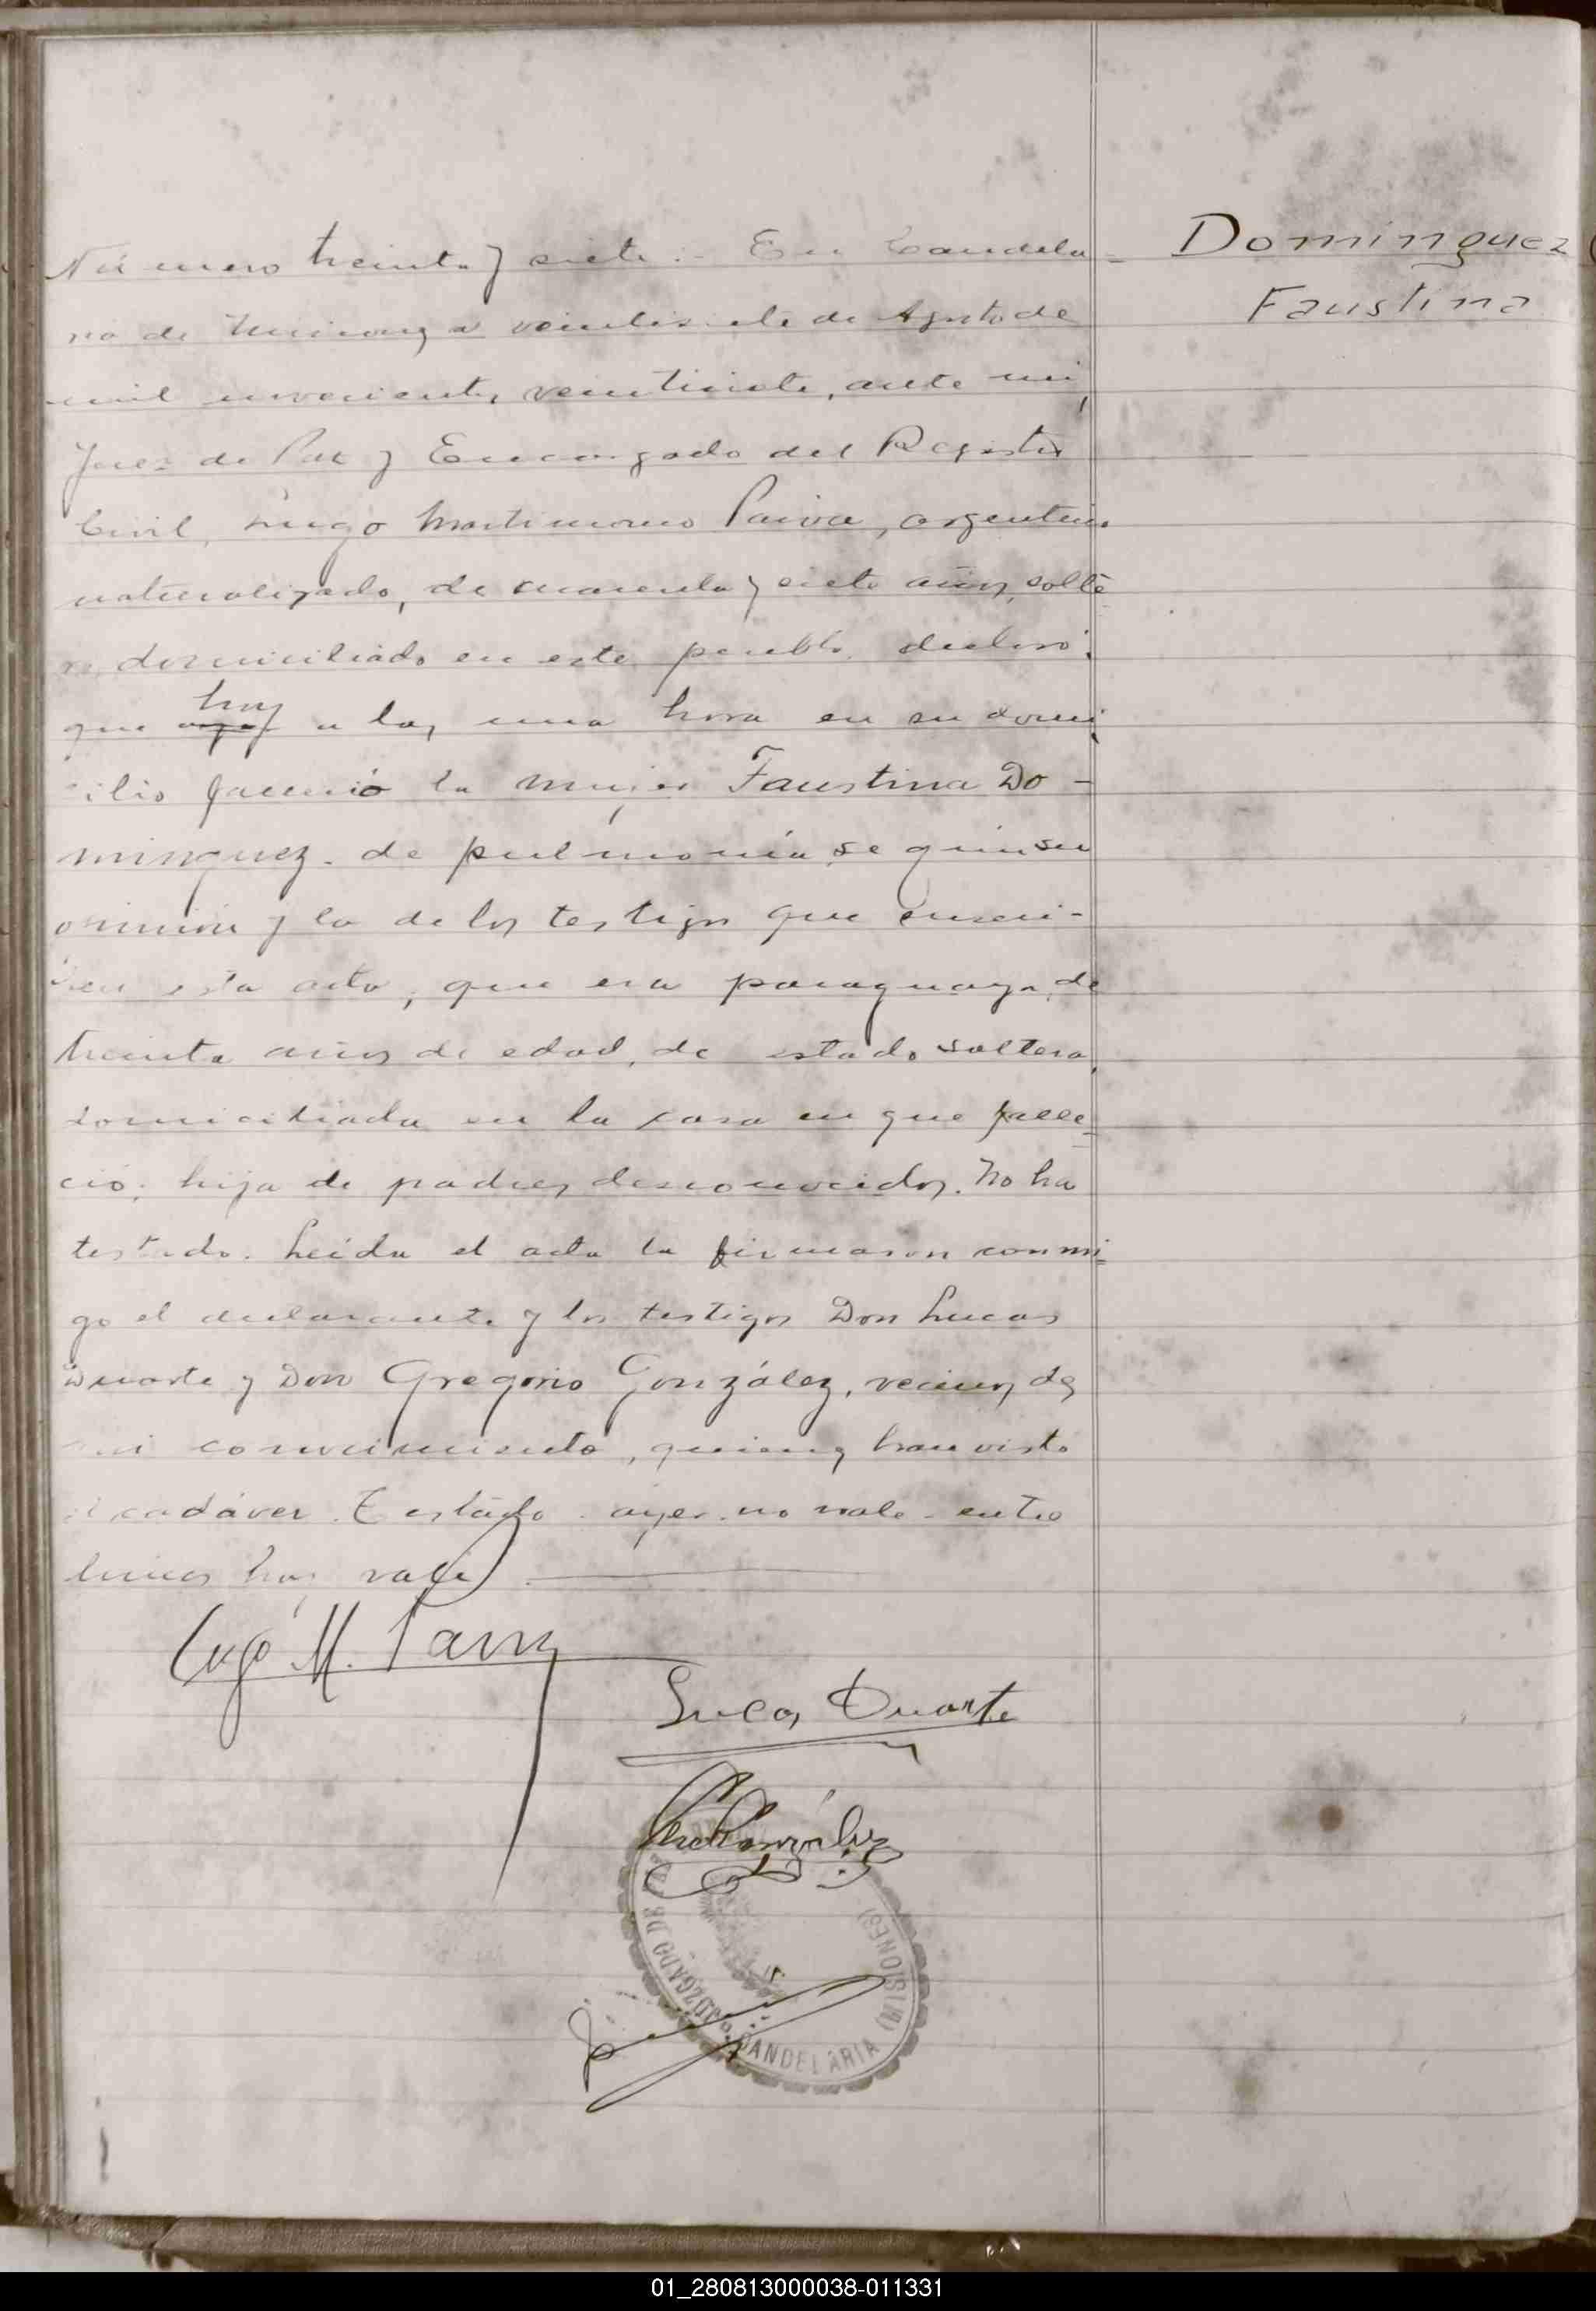 Número treinta y siete:- En Candela-
ria de Misiones a veintisiete de Agosto de
mil novecientos veintisiete, ante mi,
Juez de Paz y Encargado del Registro
Civil, Lugo Martimiano Paiva, argentino
naturalizado, de cuarenta y siete años, solte-
ro, domiciliado en este pueblo, declaró:
que ayer hoy a las una hora en su domi-
cilio falleció la mujer Faustina Do-
minguez. de pulmonía, según su
opinión y la de los testigos que suscri-
ben esta acta, que era paraguaya, de
treinta años de edad, de estado soltera,
domiciliada en la casa en que falle-
ció; hija de padres desconocidos. No ha
testado. Leída el acta la firmaron conmi-
go el declarante y los testigos Don Lucas
Duarte y Don Gregorio González, vecinos de
mi conocimiento, quienes han visto
el cadáver. Testado. ayer. no vale. entre
lineas hoy vale.
Dominguez
Faustina
Lugo M. Paiva
Lucas Duarte
González
JUZGADO DE PAZ
CANDELARIA (MISIONES)
01_280813000038-011331